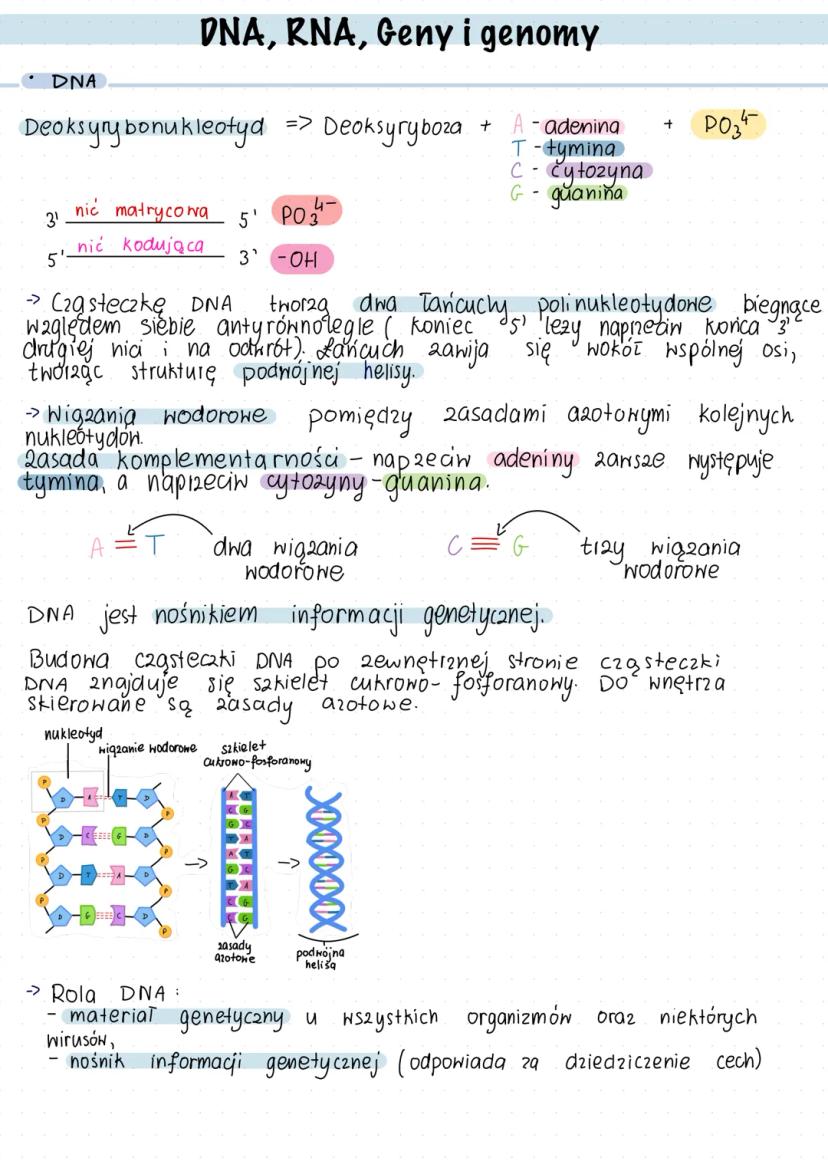 DNA, RNA, Geny i genomy
• DNA
Deoksyrybonukleotyd => Deoksyryboza + A - adenina + PO₃⁴⁻
T - tymina
C - cytozyna
G - guanina
3' nić matrycowa 5' PO₃⁴⁻
5' nić kodująca 3' -OH
-> Cząsteczkę DNA tworzą dwa łańcuchy polinukleotydowe biegnące
względem siebie antyrównolegle ( koniec 5' leży naprzeciw końca 3'
drugiej nici i na odwrót). Łańcuch zawija się wokół wspólnej osi,
tworząc strukturę podwójnej helisy.
-> Wiązania wodorowe pomiędzy zasadami azotowymi kolejnych
nukleotydów.
zasada komplementarności - naprzeciw adeniny zawsze występuje
tymina, a naprzeciw cytozyny - guanina.
A = T dwa wiązania
wodorowe
C ≡ G trzy wiązania
wodorowe
DNA jest nośnikiem informacji genetycznej.
Budowa cząsteczki DNA po zewnętrznej stronie cząsteczki
DNA znajduje się szkielet cukrowo-fosforanowy. Do wnętrza
skierowane są zasady azotowe.
nukleotyd
wiązanie wodorowe
szkielet
cukrowo-fosforanowy
P
D A T D
P
P
D C G D
P
P
D T A D
P
P
D G C D
P
A T
C G
G C
T A
A T
G C
T A
C G
C G
zasady
azotowe
podwójna
helisa
-> Rola DNA:
- materiał genetyczny u wszystkich organizmów oraz niektórych
wirusów,
- nośnik informacji genetycznej (odpowiada za dziedziczenie cech)